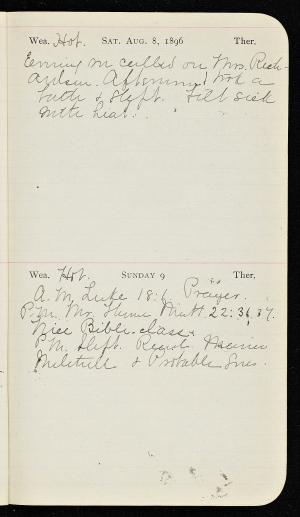 Wea. Hot. SAT. AUG. 8, 1896 Ther.
Evening we called on Mrs. Rich-
ardson. Afternoon took a
bath & slept. Felt sick
with heat.
Wea. Hot. SUNDAY 9 Ther.
A.M. Luke 18:1 Prayer.
P.M. Mr. Matt 22:36,37.
Nice Bible class.
P.M. Slept. Read
& Probable Sons.